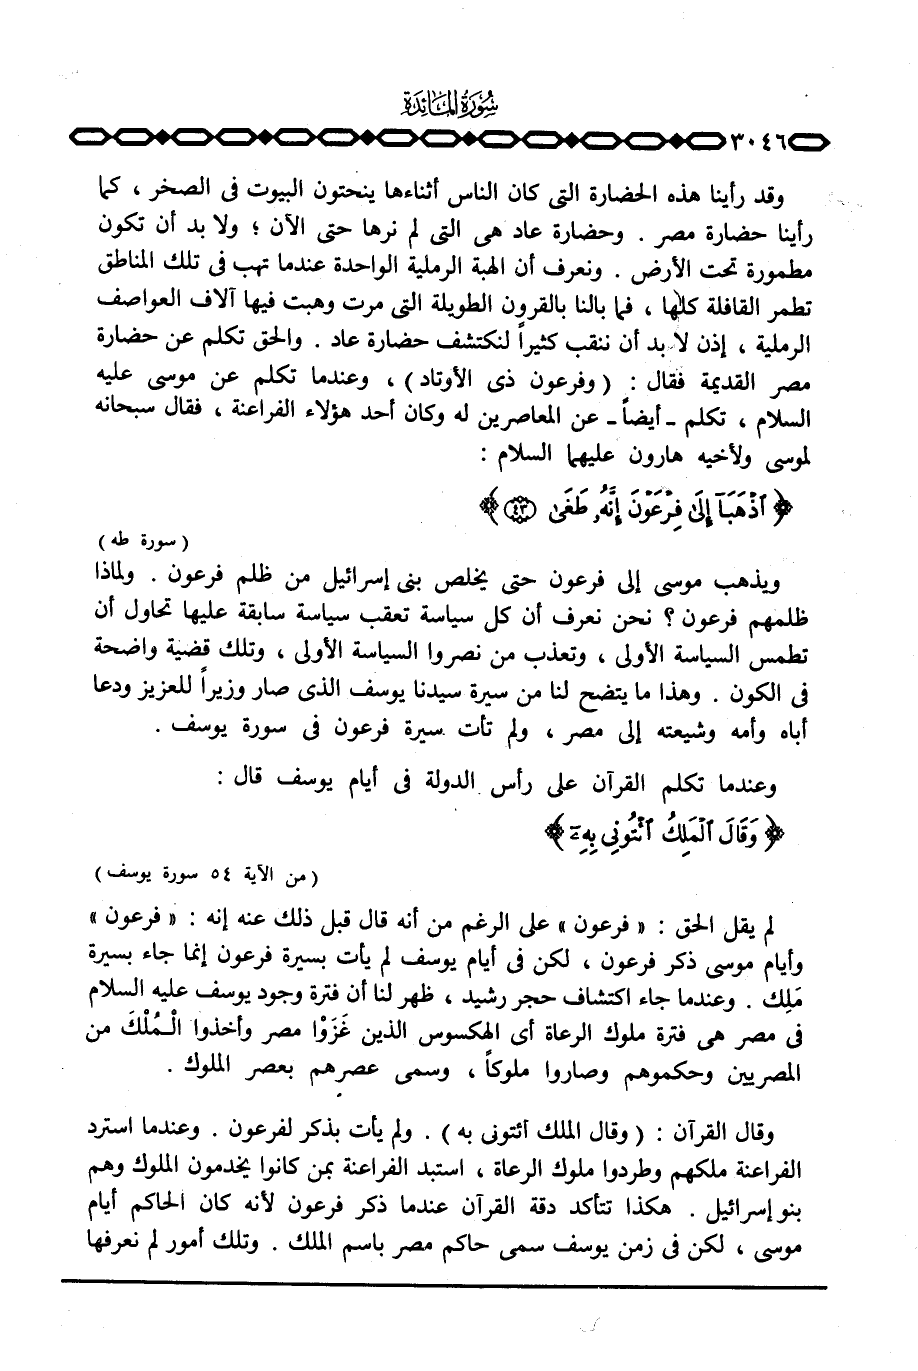 سُورَةُ المَائِدَة
٣٠٤٦
وقد رأينا هذه الحضارة التى كان الناس أثناءها ينحتون البيوت فى الصخر ، كما
رأينا حضارة مصر . وحضارة عاد هى التى لم نرها حتى الآن ؛ ولا بد أن تكون
مطمورة تحت الأرض . ونعرف أن الهبة الرملية الواحدة عندما تهب فى تلك المناطق
تطمر القافلة كلها ، فما بالنا بالقرون الطويلة التى مرت وهبت فيها آلاف العواصف
الرملية ، إذن لا بد أن ننقب كثيراً لنكتشف حضارة عاد . والحق تكلم عن حضارة
مصر القديمة فقال : ( وفرعون ذى الأوتاد ) ، وعندما تكلم عن موسى عليه
السلام ، تكلم ـ أيضاً ـ عن المعاصرين له وكان أحد هؤلاء الفراعنة ، فقال سبحانه
لموسى ولأخيه هارون عليهما السلام :
﴿ ٱذْهَبَآ إِلَىٰ فِرْعَوْنَ إِنَّهُۥ طَغَىٰ ٤٣ ﴾
( سورة طه )
ويذهب موسى إلى فرعون حتى يخلص بنى إسرائيل من ظلم فرعون . ولماذا
ظلمهم فرعون ؟ نحن نعرف أن كل سياسة تعقب سياسة سابقة عليها تحاول أن
تطمس السياسة الأولى ، وتعذب من نصروا السياسة الأولى ، وتلك قضية واضحة
فى الكون . وهذا ما يتضح لنا من سيرة سيدنا يوسف الذى صار وزيراً للعزيز ودعا
أباه وأمه وشيعته إلى مصر ، ولم تأت سيرة فرعون فى سورة يوسف .
وعندما تكلم القرآن على رأس الدولة فى أيام يوسف قال :
﴿ وَقَالَ ٱلْمَلِكُ ٱئْتُونِى بِهِۦٓ ﴾
( من الآية ٥٤ سورة يوسف )
لم يقل الحق : « فرعون » على الرغم من أنه قال قبل ذلك عنه إنه : « فرعون »
وأيام موسى ذكر فرعون ، لكن فى أيام يوسف لم يأت بسيرة فرعون إنما جاء بسيرة
مَلِك . وعندما جاء اكتشاف حجر رشيد ، ظهر لنا أن فترة وجود يوسف عليه السلام
فى مصر هى فترة ملوك الرعاة أى الهكسوس الذين غَزَوْا مصر وأخذوا الْمُلْكَ من
المصريين وحكموهم وصاروا ملوكاً ، وسمى عصرهم بعصر الملوك .
وقال القرآن : ( وقال الملك أئتونى به ) . ولم يأت بذكر لفرعون . وعندما استرد
الفراعنة ملكهم وطردوا ملوك الرعاة ، استبد الفراعنة بمن كانوا يخدمون الملوك وهم
بنو إسرائيل . هكذا تتأكد دقة القرآن عندما ذكر فرعون لأنه كان الحاكم أيام
موسى ، لكن فى زمن يوسف سمى حاكم مصر باسم الملك . وتلك أمور لم نعرفها